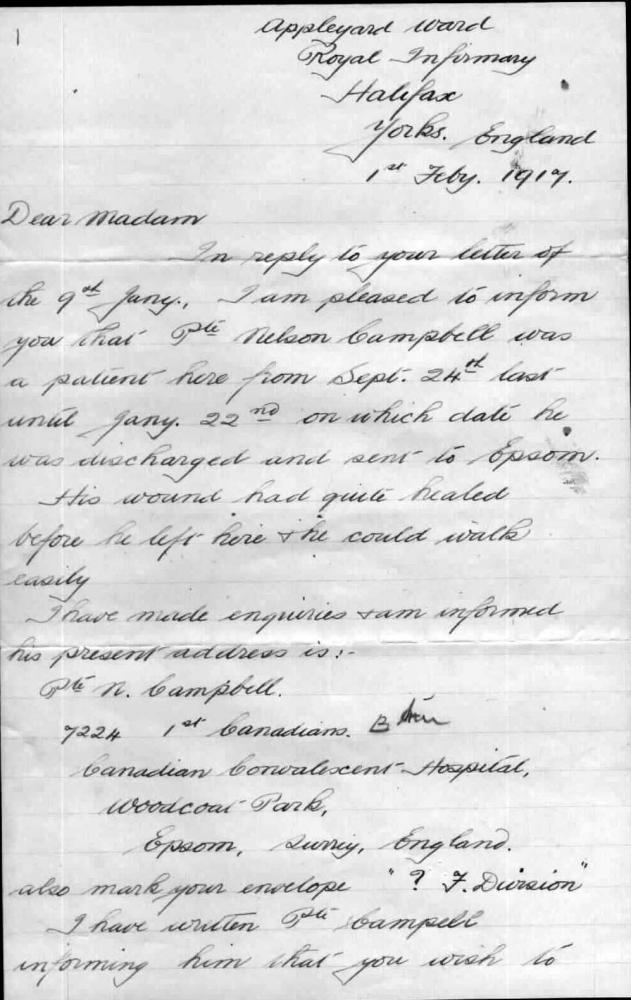 1
Appleyard Ward
Royal Infirmary
Halifax
Yorks. England
1st Feby. 1917.
Dear Madam
In reply to your letter of
the 9th Jany., I am pleased to inform
you that Pte Nelson Campbell was
a patient here from Sept. 24th last
until Jany. 22nd on which date he
was discharged and sent to Epsom.
His wound had quite healed
before he left here & he could walk
easily
I have made enquiries & am informed
his present address is:-
Pte N. Campbell.
7224 1st Canadians. B
Canadian Convalescent Hospital,
Woodcoat Park,
Epsom, Surrey, England.
also mark your envelope "? F. Division"
I have written Pte Campell
informing him that you wish to